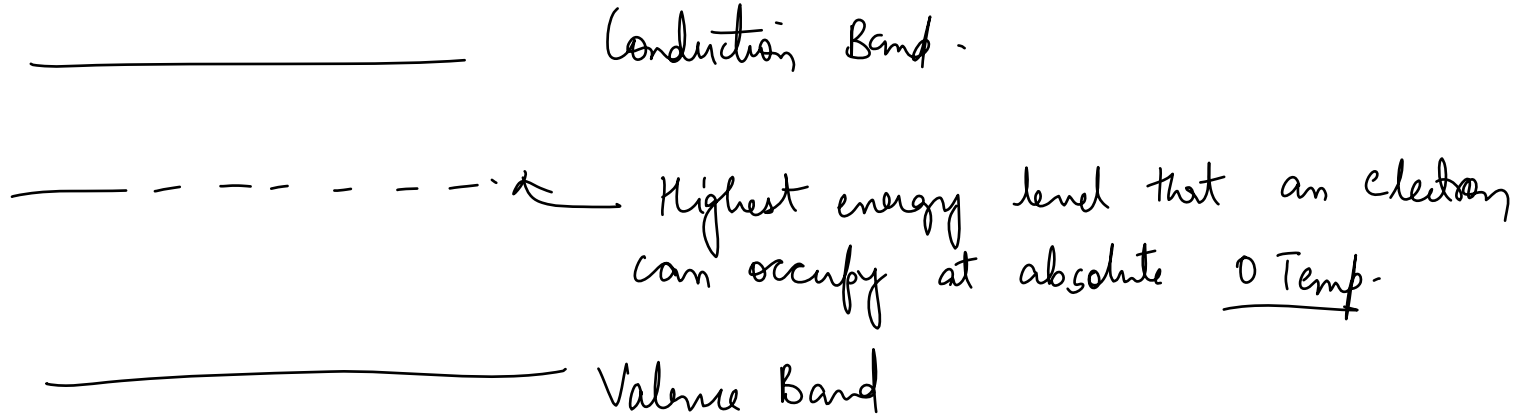 Conduction Band.
Highest energy level that an electron
can occupy at absolute 0 Temp.
Valence Band